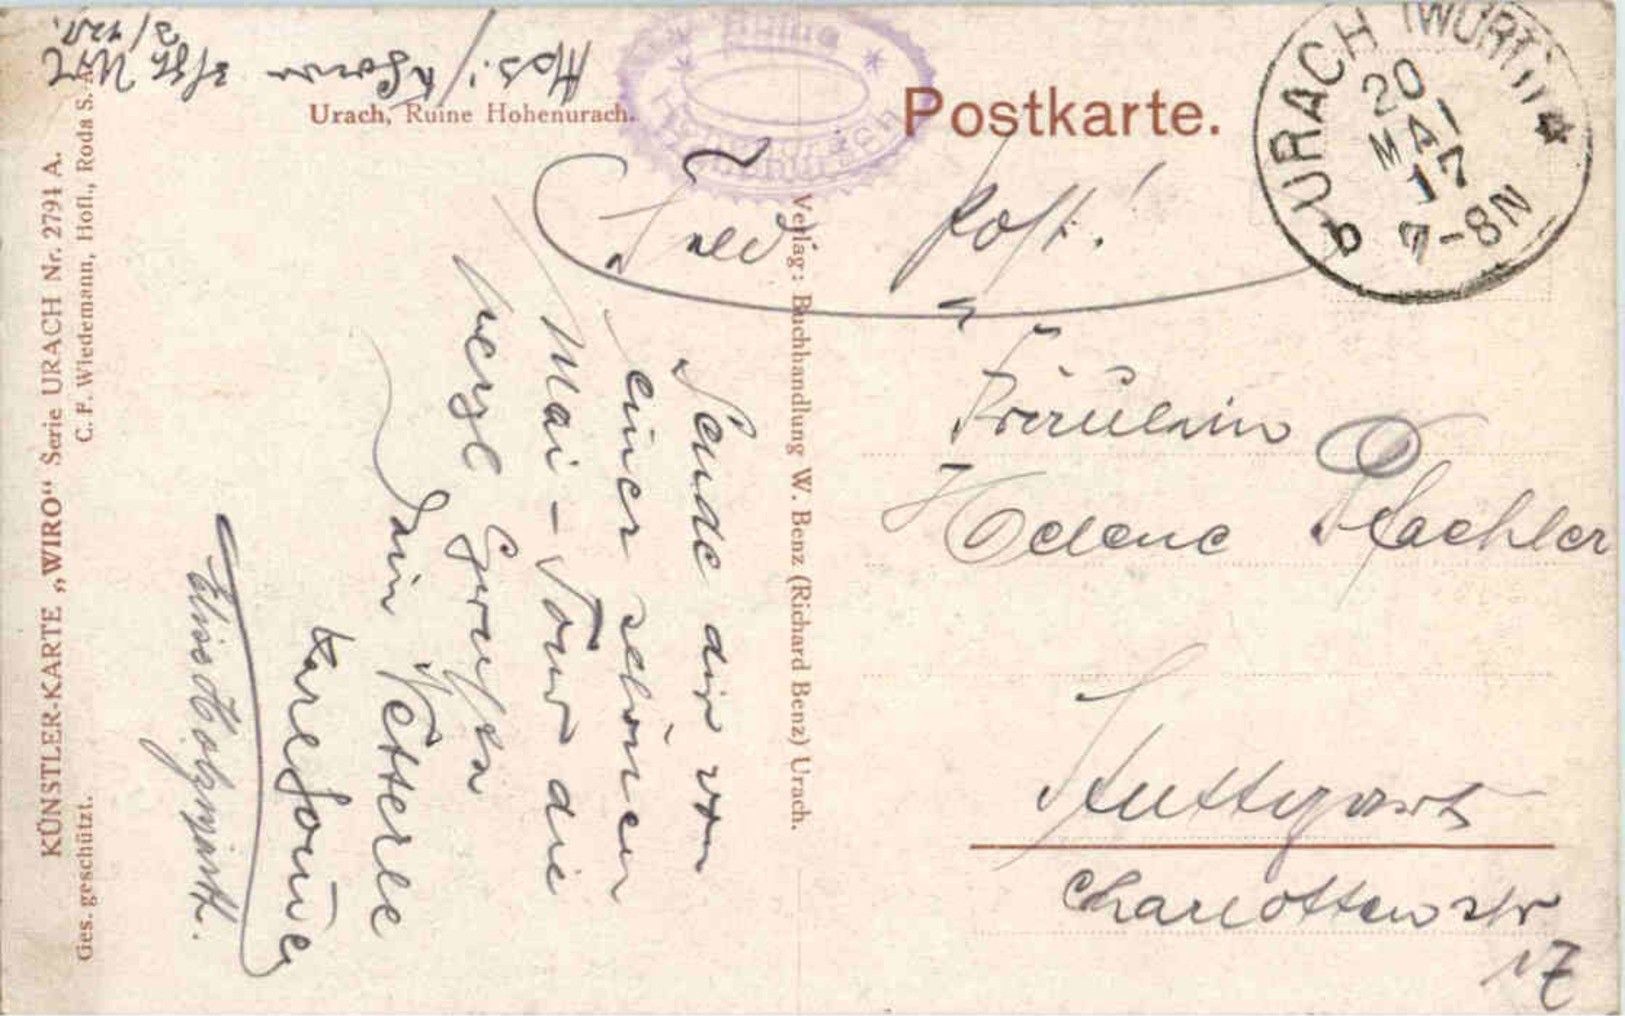 Urach, Ruine Hohenurach.
Postkarte.
URACH (WÜRTT)
20
MAI
17
7-8N
b
Ruine
Hohenurach
KÜNSTLER-KARTE „WIRO“ Serie URACH Nr. 2791 A.
Ges. geschützt.
C. F. Wiedemann, Hofl., Roda S. A.
Verlag: Buchhandlung W. Benz (Richard Benz) Urach.
Post!
Sende dir von
einer schönen
Mai-Tour die
herzl Grüßen
Dein Vetterle
Karl
Fräulein
Helene
Stuttgart
Charlottenstr
17